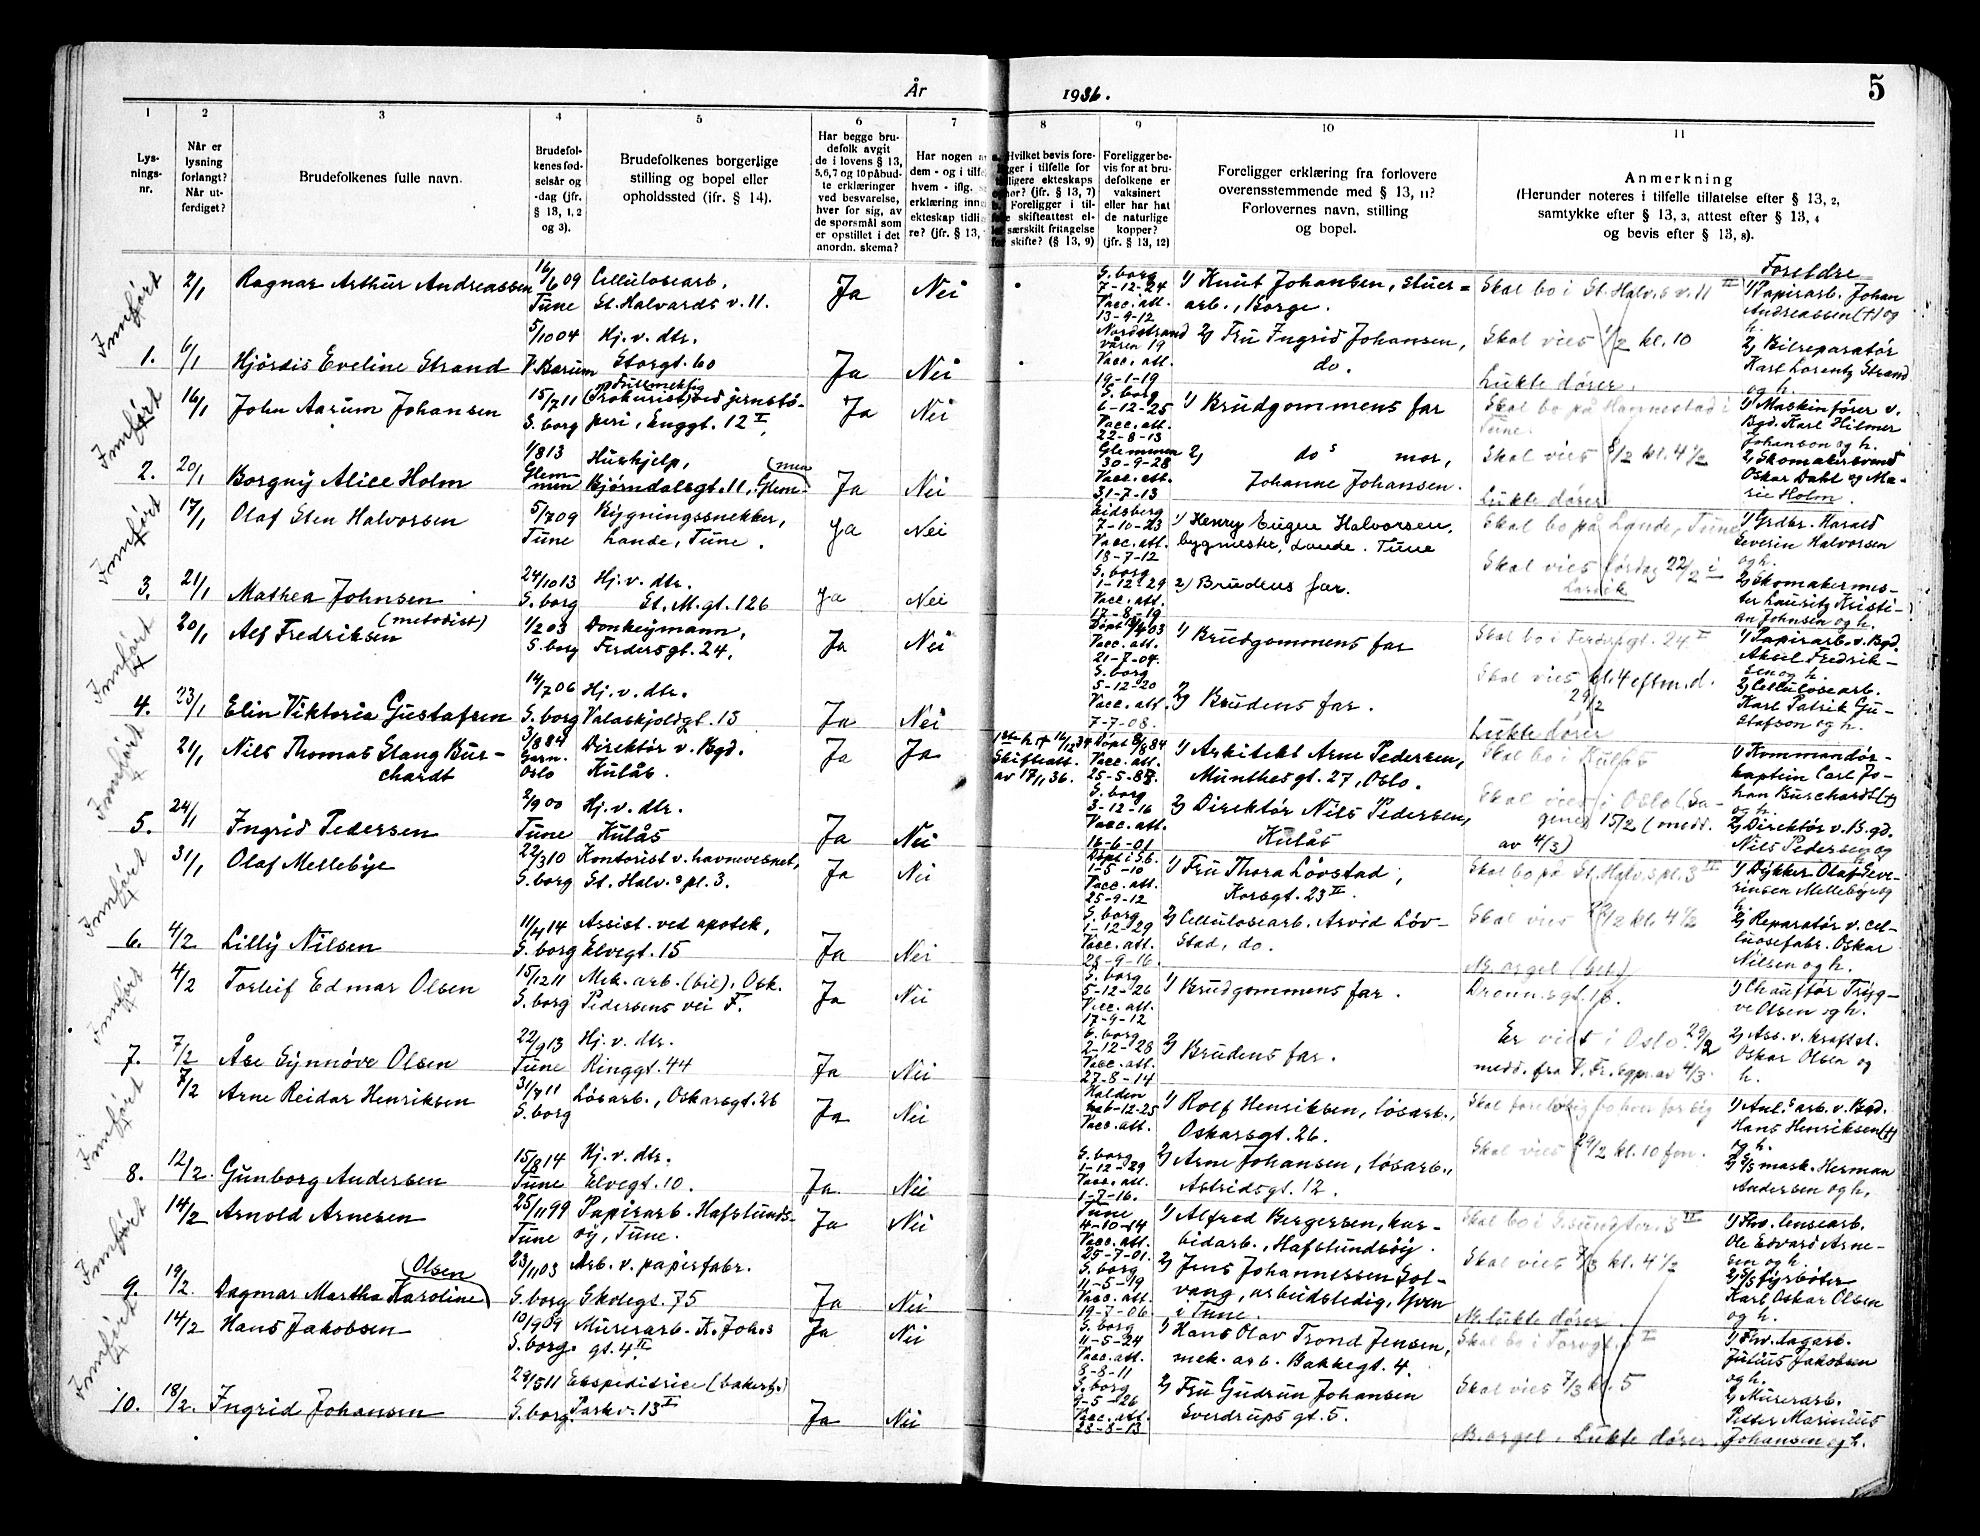 År
1936.
5
1
2
3
4
5
6
7
8
9
10
11
Lys-
nings-
nr.
Når er
lysning
forlangt?
Når ut-
ferdiget?
Brudefolkenes fulle navn.
Brudefol-
kenes fød-
selsår og
-dag (jfr.
§ 13, 1, 2
og 3).
Brudefolkenes borgerlige
stilling og bopel eller
opholdssted (jfr. § 14).
Har begge bru-
defolk avgit
de i lovens § 13,
5,6,7 og 10 påbud-
te erklæringer
ved besvarelse,
hver for sig, av
de spørsmål som
er opstillet i det
anordn. skema?
Har nogen a
dem - og i tilf
hvem - iflg.
erklæring inn
ekteskap tidli
re? (jfr. § 13,
Hvilket bevis fore-
ger i tilfelle for
ligere ekteskaps
hør? (jfr. § 13, 7)
Foreligger i til-
skifteattest el-
særskilt fritagelse
skifte? (§ 13, 9)
Foreligger be-
vis for at bru-
defolkene er
vaksinert
eller har hat
de naturlige
kopper?
(jfr. § 13, 12)
Foreligger erklæring fra forlovere
overensstemmende med § 13, 11?
Forlovernes navn, stilling
og bopel.
Anmerkning
(Herunder noteres i tilfelle tillatelse efter § 13, 2,
samtykke efter § 13, 3, attest efter § 13, 4
og bevis efter § 13, 8).
Foreldre
Innført
2/1 Ragnar Arthur Andreassen 16/6 09 Tune Cellulosearb. St. Halvards v. 11. Ja Nei
S. borg 7-12-24 Vacc. att. 13-9-12
1) Knut Johansen, stuer-
arb., Borge.
Skal bo i St. Halv.s v. 11 II
1) Papirarb. Johan
Andreassen (+) og
h.
1. 6/1 Hjørdis Eveline Strand 5/10 04 V. Bærum Hj. v. dtr. Storgt. 60 Ja Nei
Nordstrand våren 19 Vacc. att. 19-1-19
2) Fru Ingrid Johansen,
do.
Skal vies 1/2 kl. 10
Lukte dører.
2) Bilreparatør
Karl Lorentz Strand
og h.
Innført
16/1 John Aarum Johansen 15/7 11 S. borg Fullmektig (Prokurist) ved jernstø-
peri, Enggt. 12 I Ja Nei
S. borg 6-12-25 Vacc. att. 22-8-13
1) Brudgommens far
Skal bo på Hannestad i
Tune.
1) Maskinfører v.
Bgd. Karl Hilmer
Johanson og h.
2. 20/1 Borgny Alice Holm 1/8 13 Glem-
men Hushjelp, Bjørndalsgt. 11, Glem-
men Ja Nei
Glemmen 30-9-28 Vacc. att. 31-7-13
2) do s mor,
Johanne Johansen.
Skal vies 8/2 kl. 4 1/2
Lukte dører
2) Skomakersvend
Oskar Dahl og Ma-
rie Holm.
Innført
17/1 Olaf Sten Halvorsen 5/7 09 Tune Bygningssnekker,
Lande, Tune. Ja Nei
Eidsberg 7-10-23 Vacc. att. 18-7-12
1) Henry Eugen Halvorsen,
bygmester, Lande. Tune
Skal bo på Lande, Tune
1) Grdbr. Harald
Severin Halvorsen
og h.
3. 21/1 Mathea Johnsen 24/10 13 S. borg Hj. v. dtr.
St. M. gt. 126 Ja Nei
S. borg 1-12-29 Vacc. att. 17-8-19
2) Brudens far.
Skal vies lørdag 22/2 i
Larvik
2) Skomakermes-
ter Lauritz Kristi-
an Johnsen og h.
Innført
20/1 Alf Fredriksen (metodist) 1/2 03 S. borg Donkeymann,
Fredersgt. 24, Ja Nei
Døpt 12/4 03 Vacc. att. 21-7-04.
1) Brudgommens far
Skal bo i Ferdersgt. 24 I
1) Papirarb. v. Bgd.
Aksel Fredrik-
sen og h.
4. 23/1 Elin Viktoria Gustafsen 14/7 06 S. borg Hj. v. dtr.
Valaskjoldgt. 13 Ja Nei
S. borg 5-12-20 Vacc. att. 7-7-08.
2) Brudens far.
Skal vies kl. 4 eftm. d.
29/2
Lukte dører
2) Cellulosearb.
Karl Patrik Gu-
stafson og h.
Innført
21/1 Nils Thomas Stang Bur-
chardt 3/8 84 Garn. Oslo Direktør v. Bgd.
Kulås. Ja Ja
Skifteatt.
av 17/1 36.
Døpt 8/8 84 Vacc. att. 25-5-88.
1) Arkitekt Arne Pedersen,
Munthesgt. 27, Oslo.
Skal bo i Kulås
1) Kommandør-
kaptein Carl Jo-
han Burchardt (+)
og h.
5. 24/1 Ingrid Pedersen 2/9 00 Tune Hj. v. dtr.
Kulås Ja Nei
S. borg 3-12-16 Vacc. att. 16-6-01
2) Direktør Nils Pedersen,
Kulås
Skal vies i Oslo (Sa-
gene) 15/2 (medd.
av 4/3)
2) Direktør v. Bgd.
Nils Pedersen og
h.
Innført
31/1 Olaf Mellebye 22/3 10 S. borg Kontorist v. havnevesnet,
St. Halv.s pl. 3. Ja Nei
Døpt i S.b. 1-5-10 Vacc. att. 25-9-12
1) Fru Thora Løvstad,
Korsgt. 23 II.
Skal bo på St. Halv.s pl. 3 II
1) Dykker Olaf Seve-
rinsen Mellebye og
h.
6. 4/2 Lilly Nilsen 11/4 14 S. borg Assist. ved apotek,
Elvegt. 15 Ja Nei
S. borg 1-12-29 Vacc. att. 28-9-16.
2) Cellulosearb. Arvid Løv-
stad, do.
Skal vies 22/2 kl. 4 1/2
M. orgel (bet.)
2) Reparatør v. cel-
lulosefabr. Oskar
Nilsen og h.
Innført
4/2 Torleif Edmar Olsen 15/12 11 S. borg Mek. arb. (bil), Osk.
Pedersens vei F. Ja Nei
S. borg 5-12-26 Vacc. att. 17-9-12
1) Brudgommens far.
Dronn.sgt. 18.
1) Chauffør Tryg-
ve Olsen og h.
7. 7/2 Åse Synnøve Olsen 22/9 13 Tune Hj. v. dtr.
Ringgt. 44 Ja Nei
S. borg 2-12-28 Vacc. att. 27-8-14
2) Brudens far.
Er viet i Oslo 29/2
medd. fra V. Fr. sgpr. av 4/3.
2) Ass. v. kraftst.
Oskar Olsen og
h.
Innført
7/2 Arne Reidar Henriksen 31/7 11 S. borg Løsarb., Oskarsgt. 26 Ja Nei
Halden 6-12-25 Vacc. att.
1) Rolf Henriksen, løsarb.,
Oskarsgt. 26.
Skal foreløbig bo hver for sig
1) Anl.s arb. v. Bgd.
Hans Henriksen (+)
og h.
8. 12/2 Gunborg Andersen 15/8 14 Tune Hj. v. dtr.
Elvegt. 10. Ja Nei
S. borg 1-12-29 Vacc. att. 1-7-16.
2) Arne Johansen, løsarb.,
Astridsgt. 12.
Skal vies 29/2 kl. 10 fm.
2) S/S mask. Herman
Andersen og h.
Innført
14/2 Arnold Arnesen 25/11 99 Tune Papirarb. Hafslunds-
øy, Tune. Ja Nei
Tune 4-10-14 Vacc. att. 25-7-01.
1) Alfred Bergersen, kar-
bidarb., Hafslundsøy.
Skal bo i Sundter. 3 II
1) Fhv. lensearb.
Ole Edvard Arne-
sen og h.
9. 19/2 Dagmar Martha Karoline Olsen 23/11 03 S. borg Arb. v. papirfabr.
Skolegt. 75 Ja Nei
S. borg 11-5-19 Vacc. att. 19-7-06
2) Jens Johannessen Sol-
vang, arbeidsledig, Yven
i Tune.
Skal vies 7/3 kl. 4 1/2
M. lukte dører.
2) S/S fyrbøter
Karl Oskar Olsen
og h.
Innført
14/2 Hans Jakobsen 10/9 09 S. borg. Murerarb. K. Joh.s
gt. 4 II Ja Nei
S. borg 11-5-24 Vacc. att. 8-8-11
1) Hans Olav Trond Jensen,
mek. arb. Bakkegt. 4.
Skal bo i Torvgt. 5 I
1) Fhv. dagarb.
Julius Jakobsen
og h.
10. 18/2. Ingrid Johansen 28/5 11 S. borg. Ekspeditrice (bakerf.)
Parkv. 13 I Ja Nei
S. borg 9-5-26 Vacc. att. 23-8-13
2) Fru Gudrun Johansen
Sverdrups gt. 5.
Skal vies 7/3 kl. 5
M. orgel. Lukte dører.
2) Murerarb.
Petter Marinius
Johansen og h.